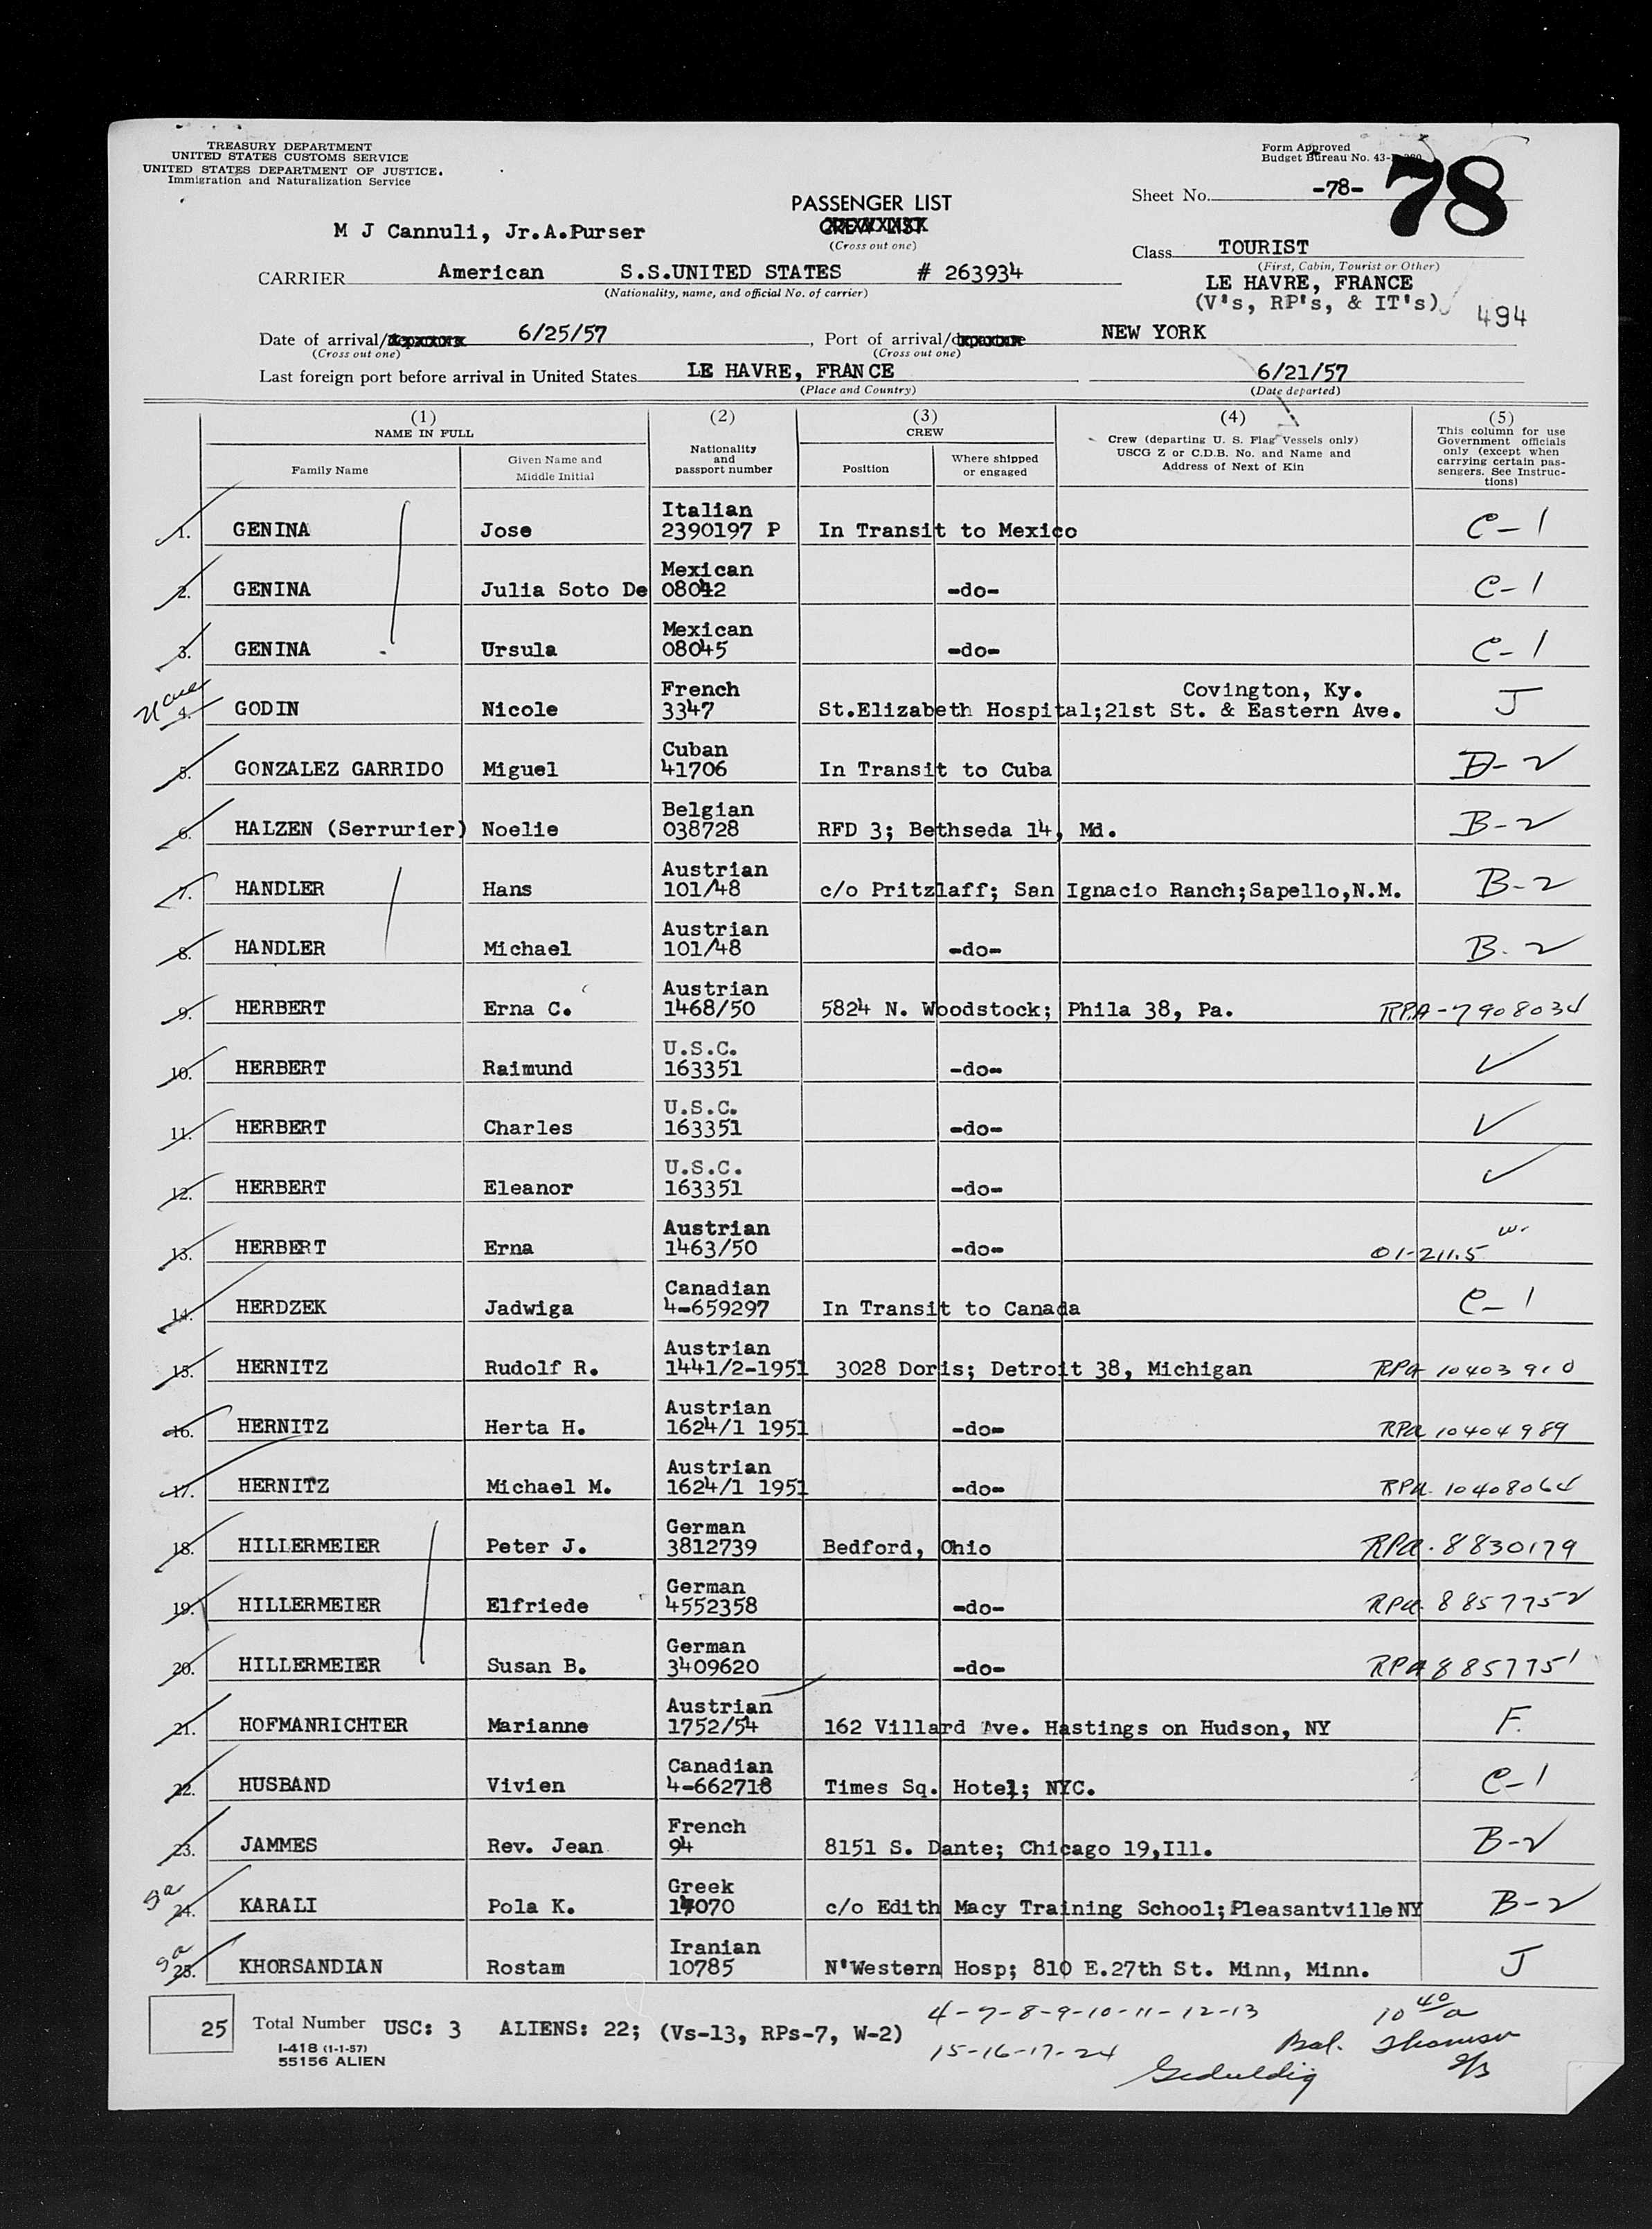 TREASURY DEPARTMENT
UNITED STATES CUSTOMS SERVICE
UNITED STATES DEPARTMENT OF JUSTICE.
Immigration and Naturalization Service
Form Approved
Budget Bureau No. 43-
PASSENGER LIST
(Cross out one)
Sheet No. -78- 78
M J Cannuli, Jr.A.Purser
Class TOURIST
(First, Cabin, Tourist or Other)
CARRIER American S.S.UNITED STATES # 263934
(Nationality, name, and official No. of carrier)
LE HAVRE, FRANCE
(V's, RP's, & IT's) 494
Date of arrival/ 6/25/57, Port of arrival/ NEW YORK
(Cross out one) (Cross out one)
Last foreign port before arrival in United States LE HAVRE, FRANCE 6/21/57
(Place and Country) (Date departed)
(1) (2) (3) (4) (5)
NAME IN FULL
Family Name
Given Name and
Middle Initial
Nationality
and
passport number
CREW
Position
Where shipped
or engaged
Crew (departing U. S. Flag Vessels only)
USCG Z or C.D.B. No. and Name and
Address of Next of Kin
This column for use
Government officials
only (except when
carrying certain pas-
sengers. See Instruc-
tions)
Italian
1. GENINA Jose 2390197 P In Transit to Mexico C-1
Mexican
2. GENINA Julia Soto De 08042 -do- C-1
Mexican
3. GENINA Ursula 08045 -do- C-1
French Covington, Ky.
4. GODIN Nicole 3347 St.Elizabeth Hospital;21st St. & Eastern Ave. J
Cuban
5. GONZALEZ GARRIDO Miguel 41706 In Transit to Cuba B-2
Belgian
6. HALZEN (Serrurier) Noelie 038728 RFD 3; Bethseda 14, Md. B-2
Austrian
7. HANDLER Hans 101/48 c/o Pritzlaff; San Ignacio Ranch;Sapello,N.M. B-2
Austrian
8. HANDLER Michael 101/48 -do- B-2
Austrian
9. HERBERT Erna C. 1468/50 5824 N. Woodstock; Phila 38, Pa. RPA-7908034
U.S.C.
10. HERBERT Raimund 163351 -do- ✓
U.S.C.
11. HERBERT Charles 163351 -do- ✓
U.S.C.
12. HERBERT Eleanor 163351 -do- ✓
Austrian
13. HERBERT Erna 1463/50 -do- 01-211.5 w.
Canadian
14. HERDZEK Jadwiga 4-659297 In Transit to Canada C-1
Austrian
15. HERNITZ Rudolf R. 1441/2-1951 3028 Doris; Detroit 38, Michigan RPA 10403910
Austrian
16. HERNITZ Herta H. 1624/1 1951 -do- RPA 10404989
Austrian
17. HERNITZ Michael M. 1624/1 1951 -do- RPA. 10408064
German
18. HILLERMEIER Peter J. 3812739 Bedford, Ohio RPA. 8830179
German
19. HILLERMEIER Elfriede 4552358 -do- RPA. 8857752
German
20. HILLERMEIER Susan B. 3409620 -do- RPA 8857751
Austrian
21. HOFMANRICHTER Marianne 1752/54 162 Villard Ave. Hastings on Hudson, NY F.
Canadian
22. HUSBAND Vivien 4-662718 Times Sq. Hotel; NYC. C-1
French
23. JAMMES Rev. Jean 94 8151 S. Dante; Chicago 19,Ill. B-2
Greek
24. KARALI Pola K. 14070 c/o Edith Macy Training School;Pleasantville NY B-2
Iranian
25. KHORSANDIAN Rostam 10785 N'Western Hosp; 810 E.27th St. Minn, Minn. J
25 Total Number USC: 3 ALIENS: 22; (Vs-13, RPs-7, W-2)
4-7-8-9-10-11-12-13
15-16-17-24
10 40 a
Geduldig
I-418 (1-1-57)
55156 ALIEN